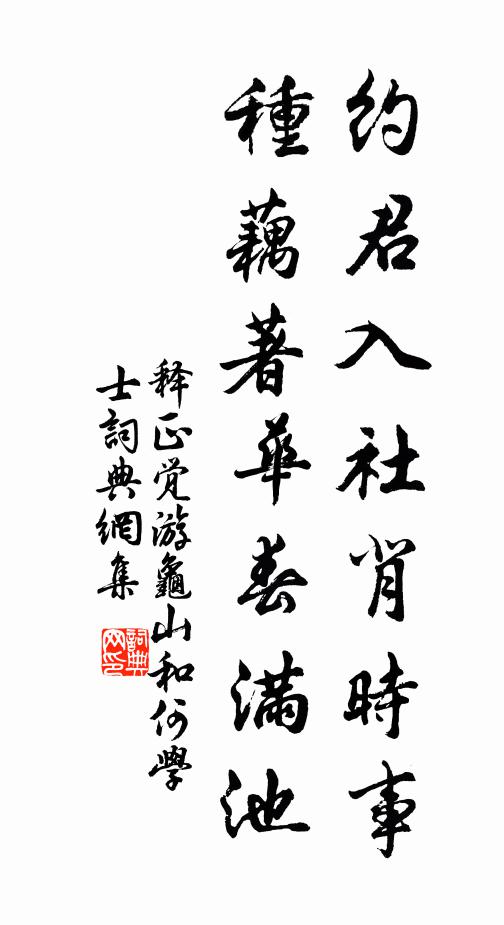 約君入社肖時事
種藕著華春滿池
释正觉游龜山和何學
士詞典網集
詞典网印